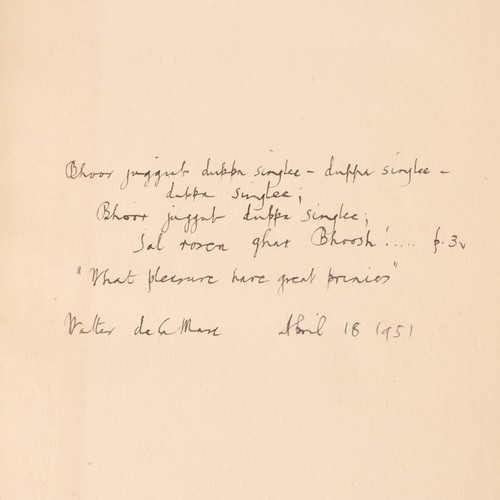 Bhoor juggut duppa singlee – duppa singlee –
duppa singlee;
Bhoor juggut duppa singlee;
Sal rosen ghar Bhoosh!.... p.
"What pleasure have great princes"
Walter de la Mare April 18 1951